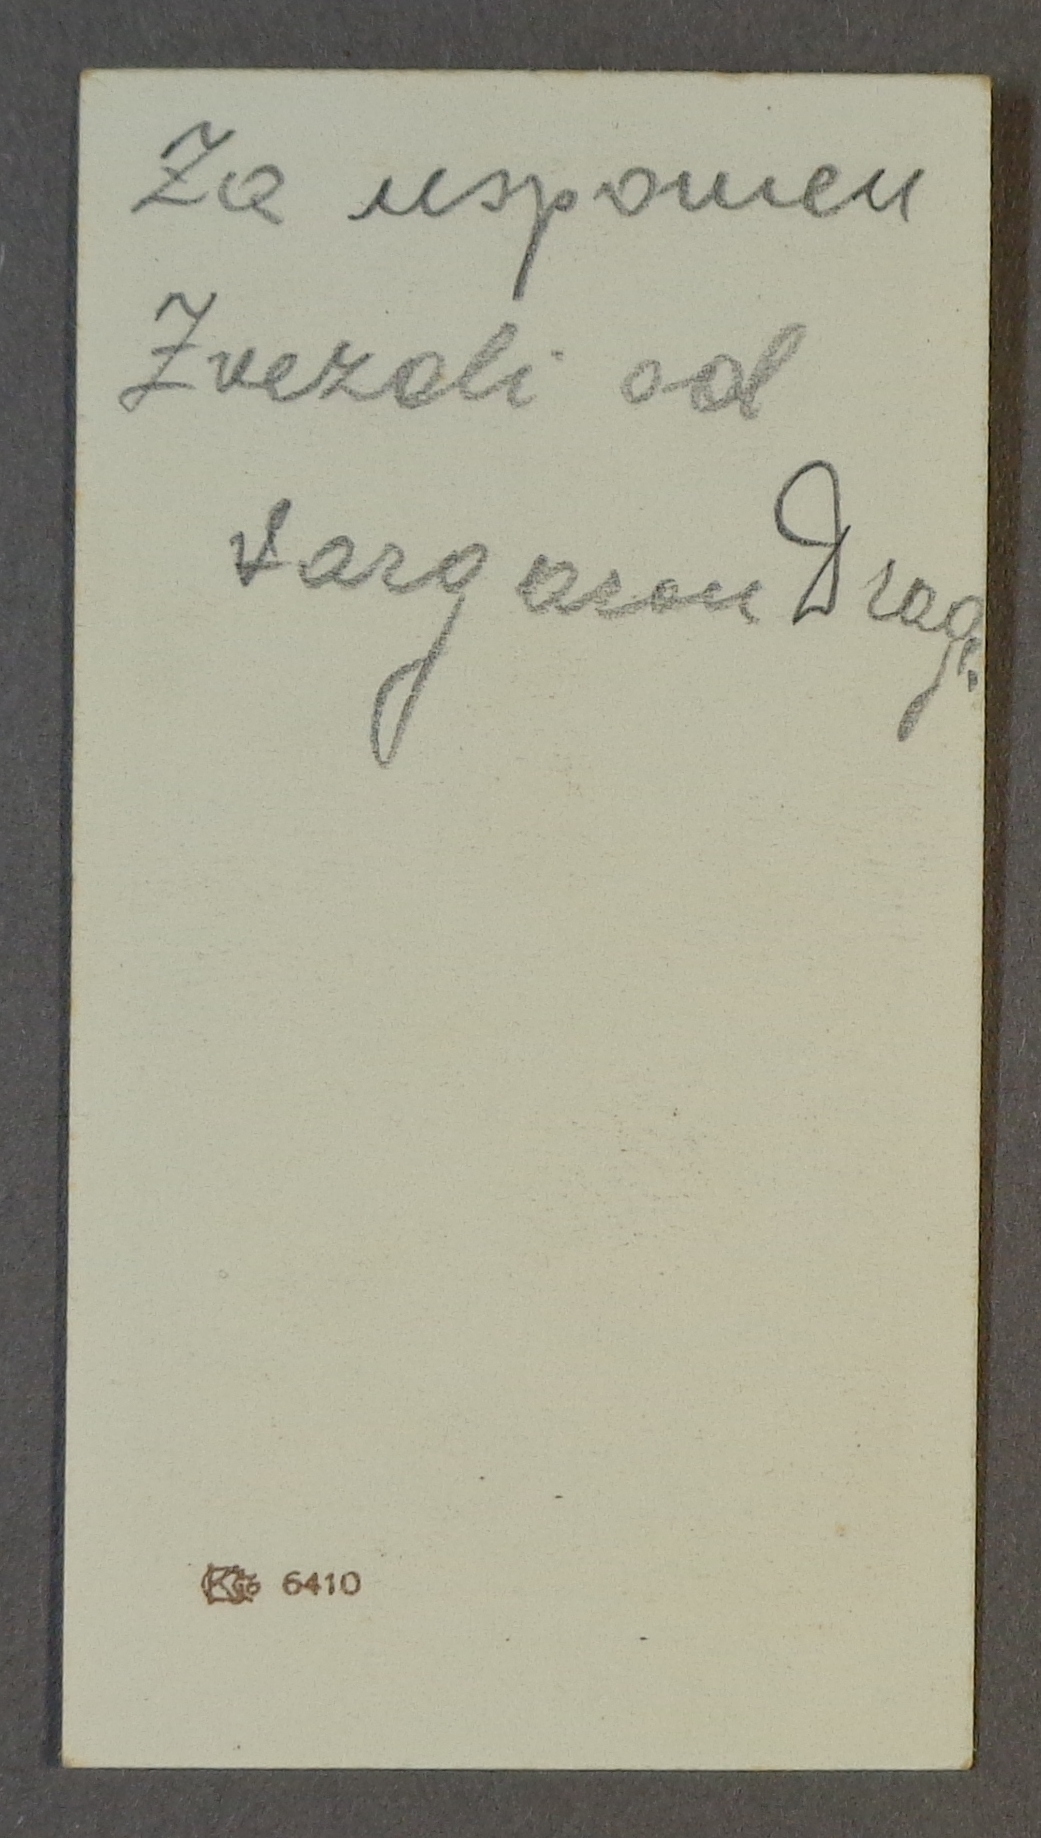 Za uspomen
Zvezdi od
Drag.
6410